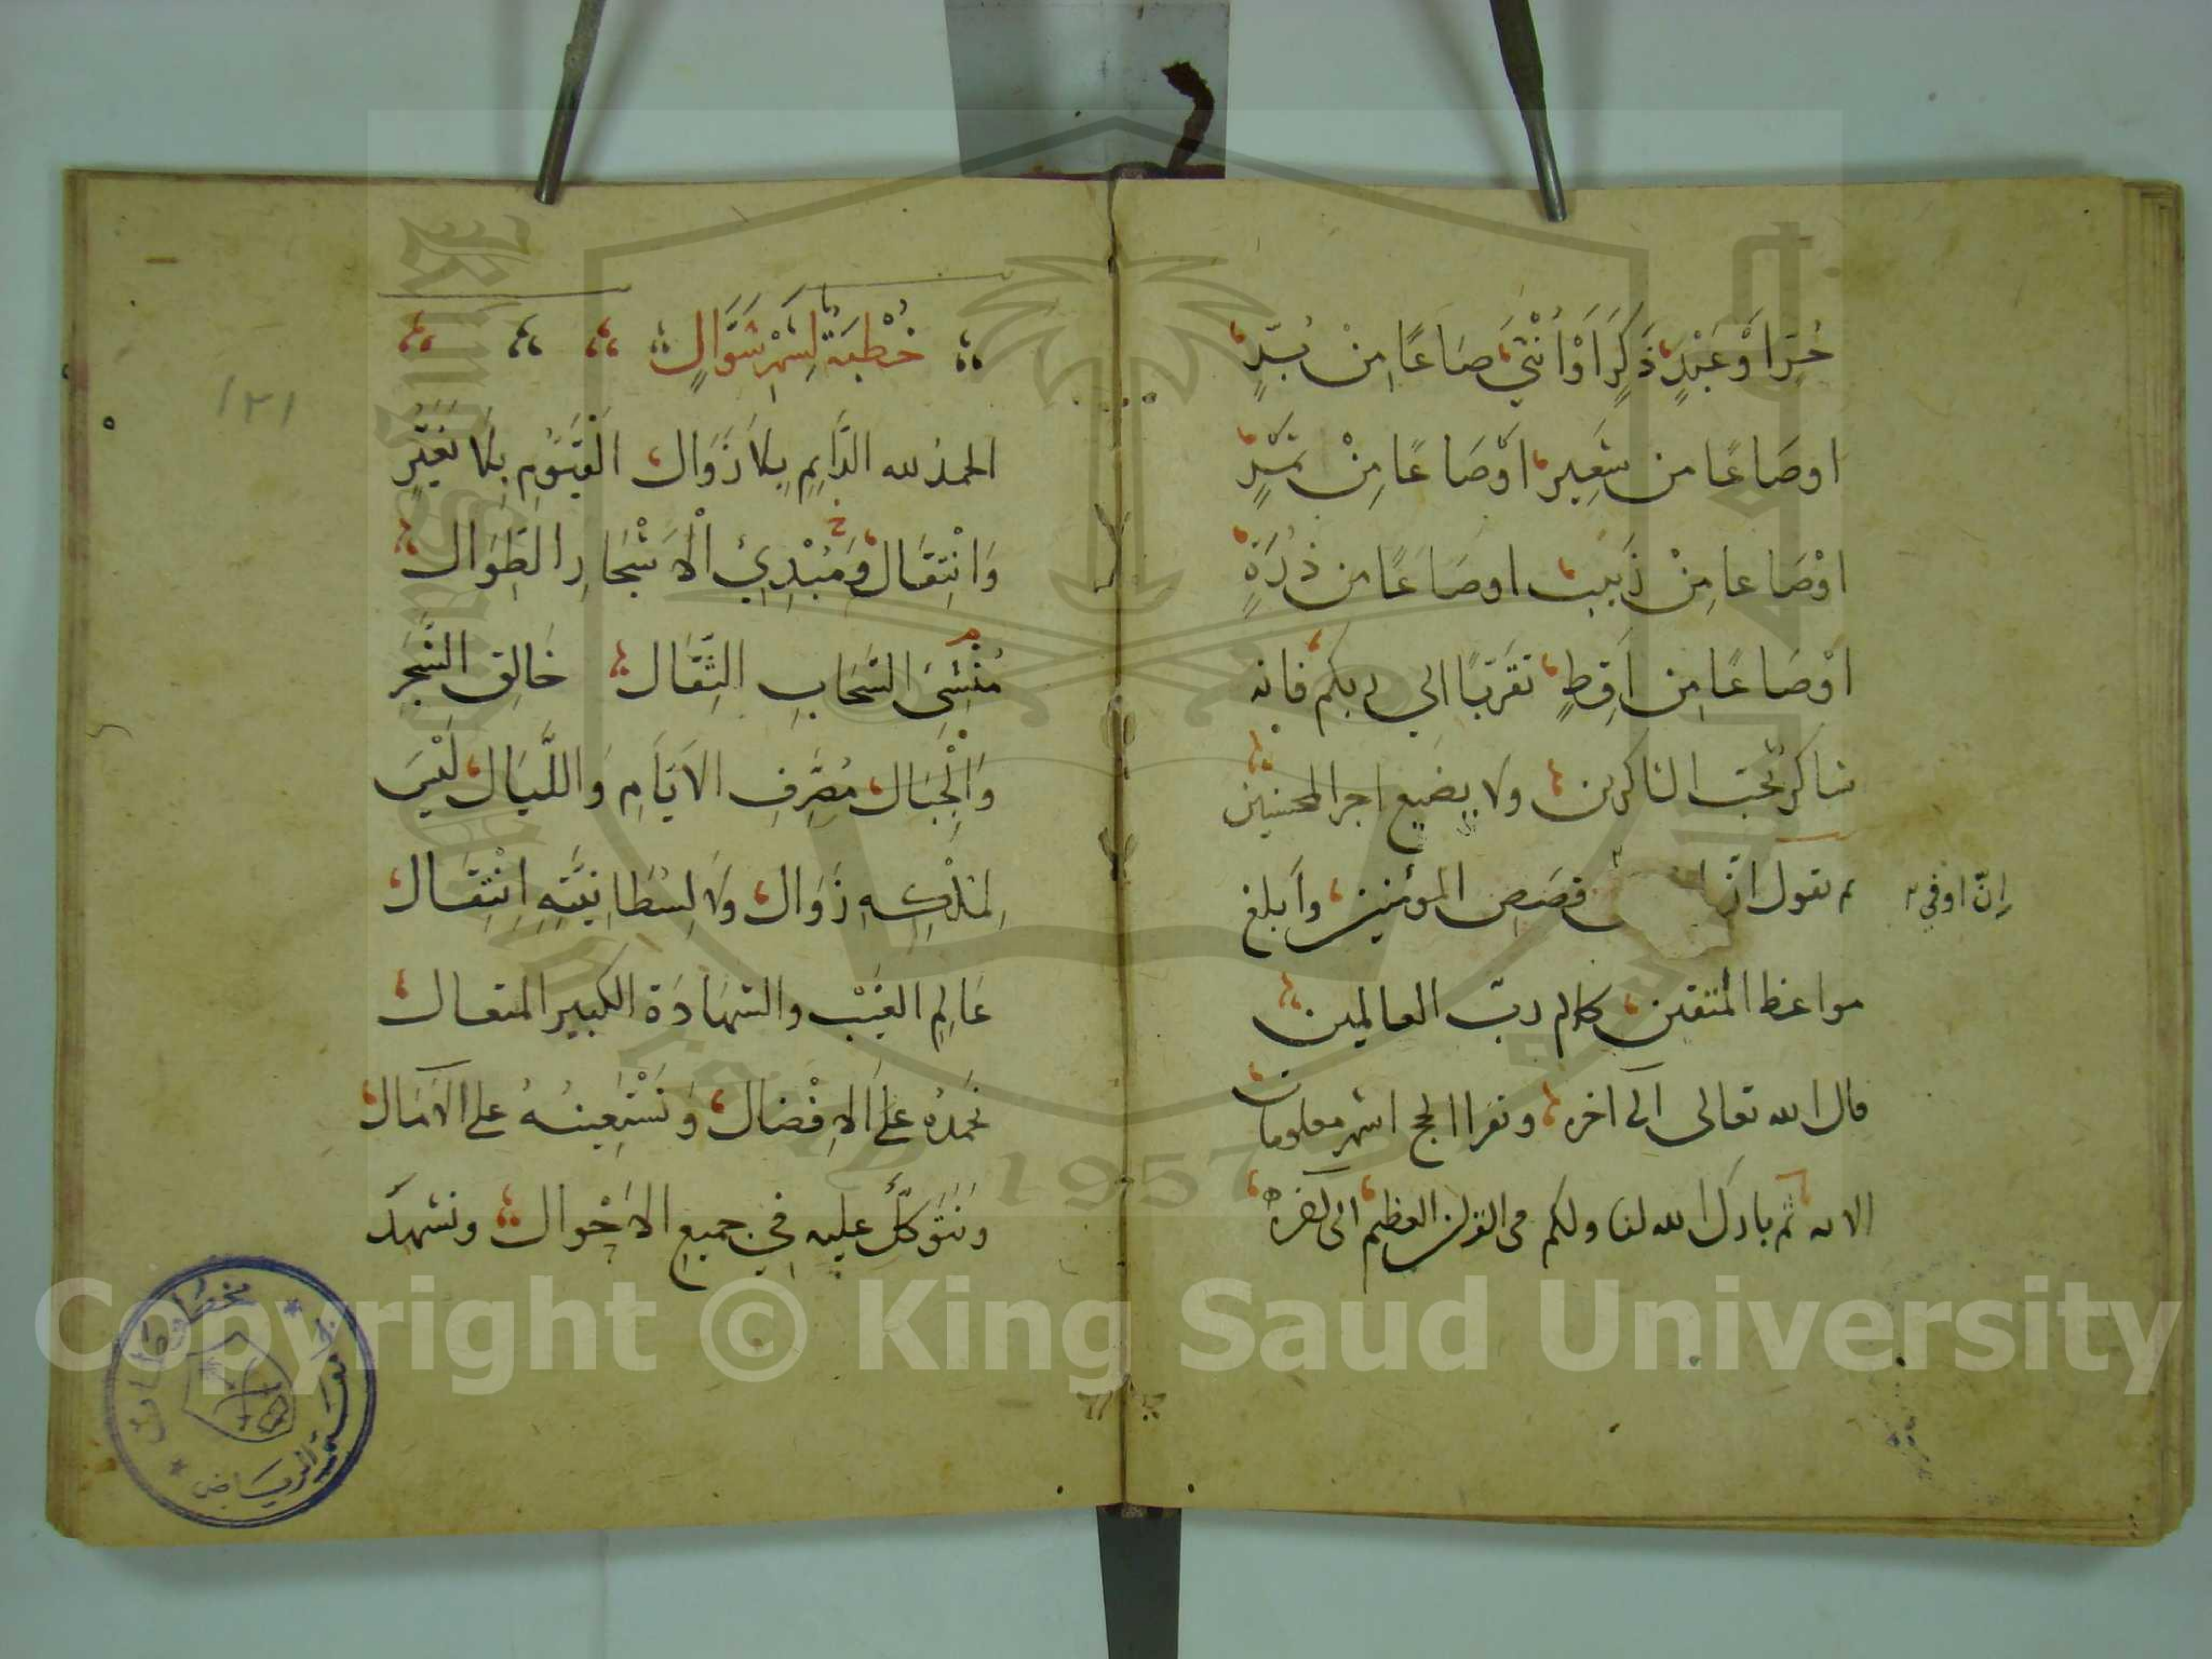 حُرٍّ اَوْ عَبْدٍ ذَكَرٍ اَوْ اُنْثَى صَاعًا مِنْ بُرٍّ
اوصَاعًا من شَعِير اَوْصَاعًا مِنْ تَمْرٍ
اوْصَاعا مِنْ زَبيب اوصَاعًا من ذُرَةٍ
اوْصَاعًا مِن اَقِطٍ تقَرّبًا الي ربكم فانه
شاكر يحبّ الشاكرين ولا يضيع اجر المحسنين
ثم تقول انّ قصَصِ المؤمنين وأبلغ
ان اوفي
مواعظ المتقين كلام ربّ العالمين
قال الله تعالى الى آخره وتقرا الحج اشهر معلومات
الايه ثم بارك الله لنا ولكم في القرآن العظيم الى آخره
١٢١
خُطْبَةٌ لِشَهْرِ شَوَّالٍ
الحمدُ لله الدَّايِمِ بِلاَ زَوَال الْقَيُّومِ بِلاَ تَغَيُّرٍ
وَانْتِقَال وَمُبْدِئِ الْاَشْجَارِ الطِّوَال
مُنْشِئِ السَّحَابِ الثِّقَال خَالِقِ الشَّجَرِ
وَالْجِبَال مُصَرِّفِ الاَيَّامِ وَاللَّيَال لَيْسَ
لِمُلْكِهِ زَوَال وَلاَ لِسُلطَانِيَّتِهِ اِنْتِقَال
عَالِمِ الغَيْب والشهَادَة الكبير المتعال
نحمدُه عَلَى الاِفْضَال وَنَسْتَعِينُهُ على الآمَال
ونَتَوَكَّلُ عليه فِي جميعِ الاَحْوال ونشهدُ
جامعة الرياض
مخطوطات
1957
Copyright © King Saud University